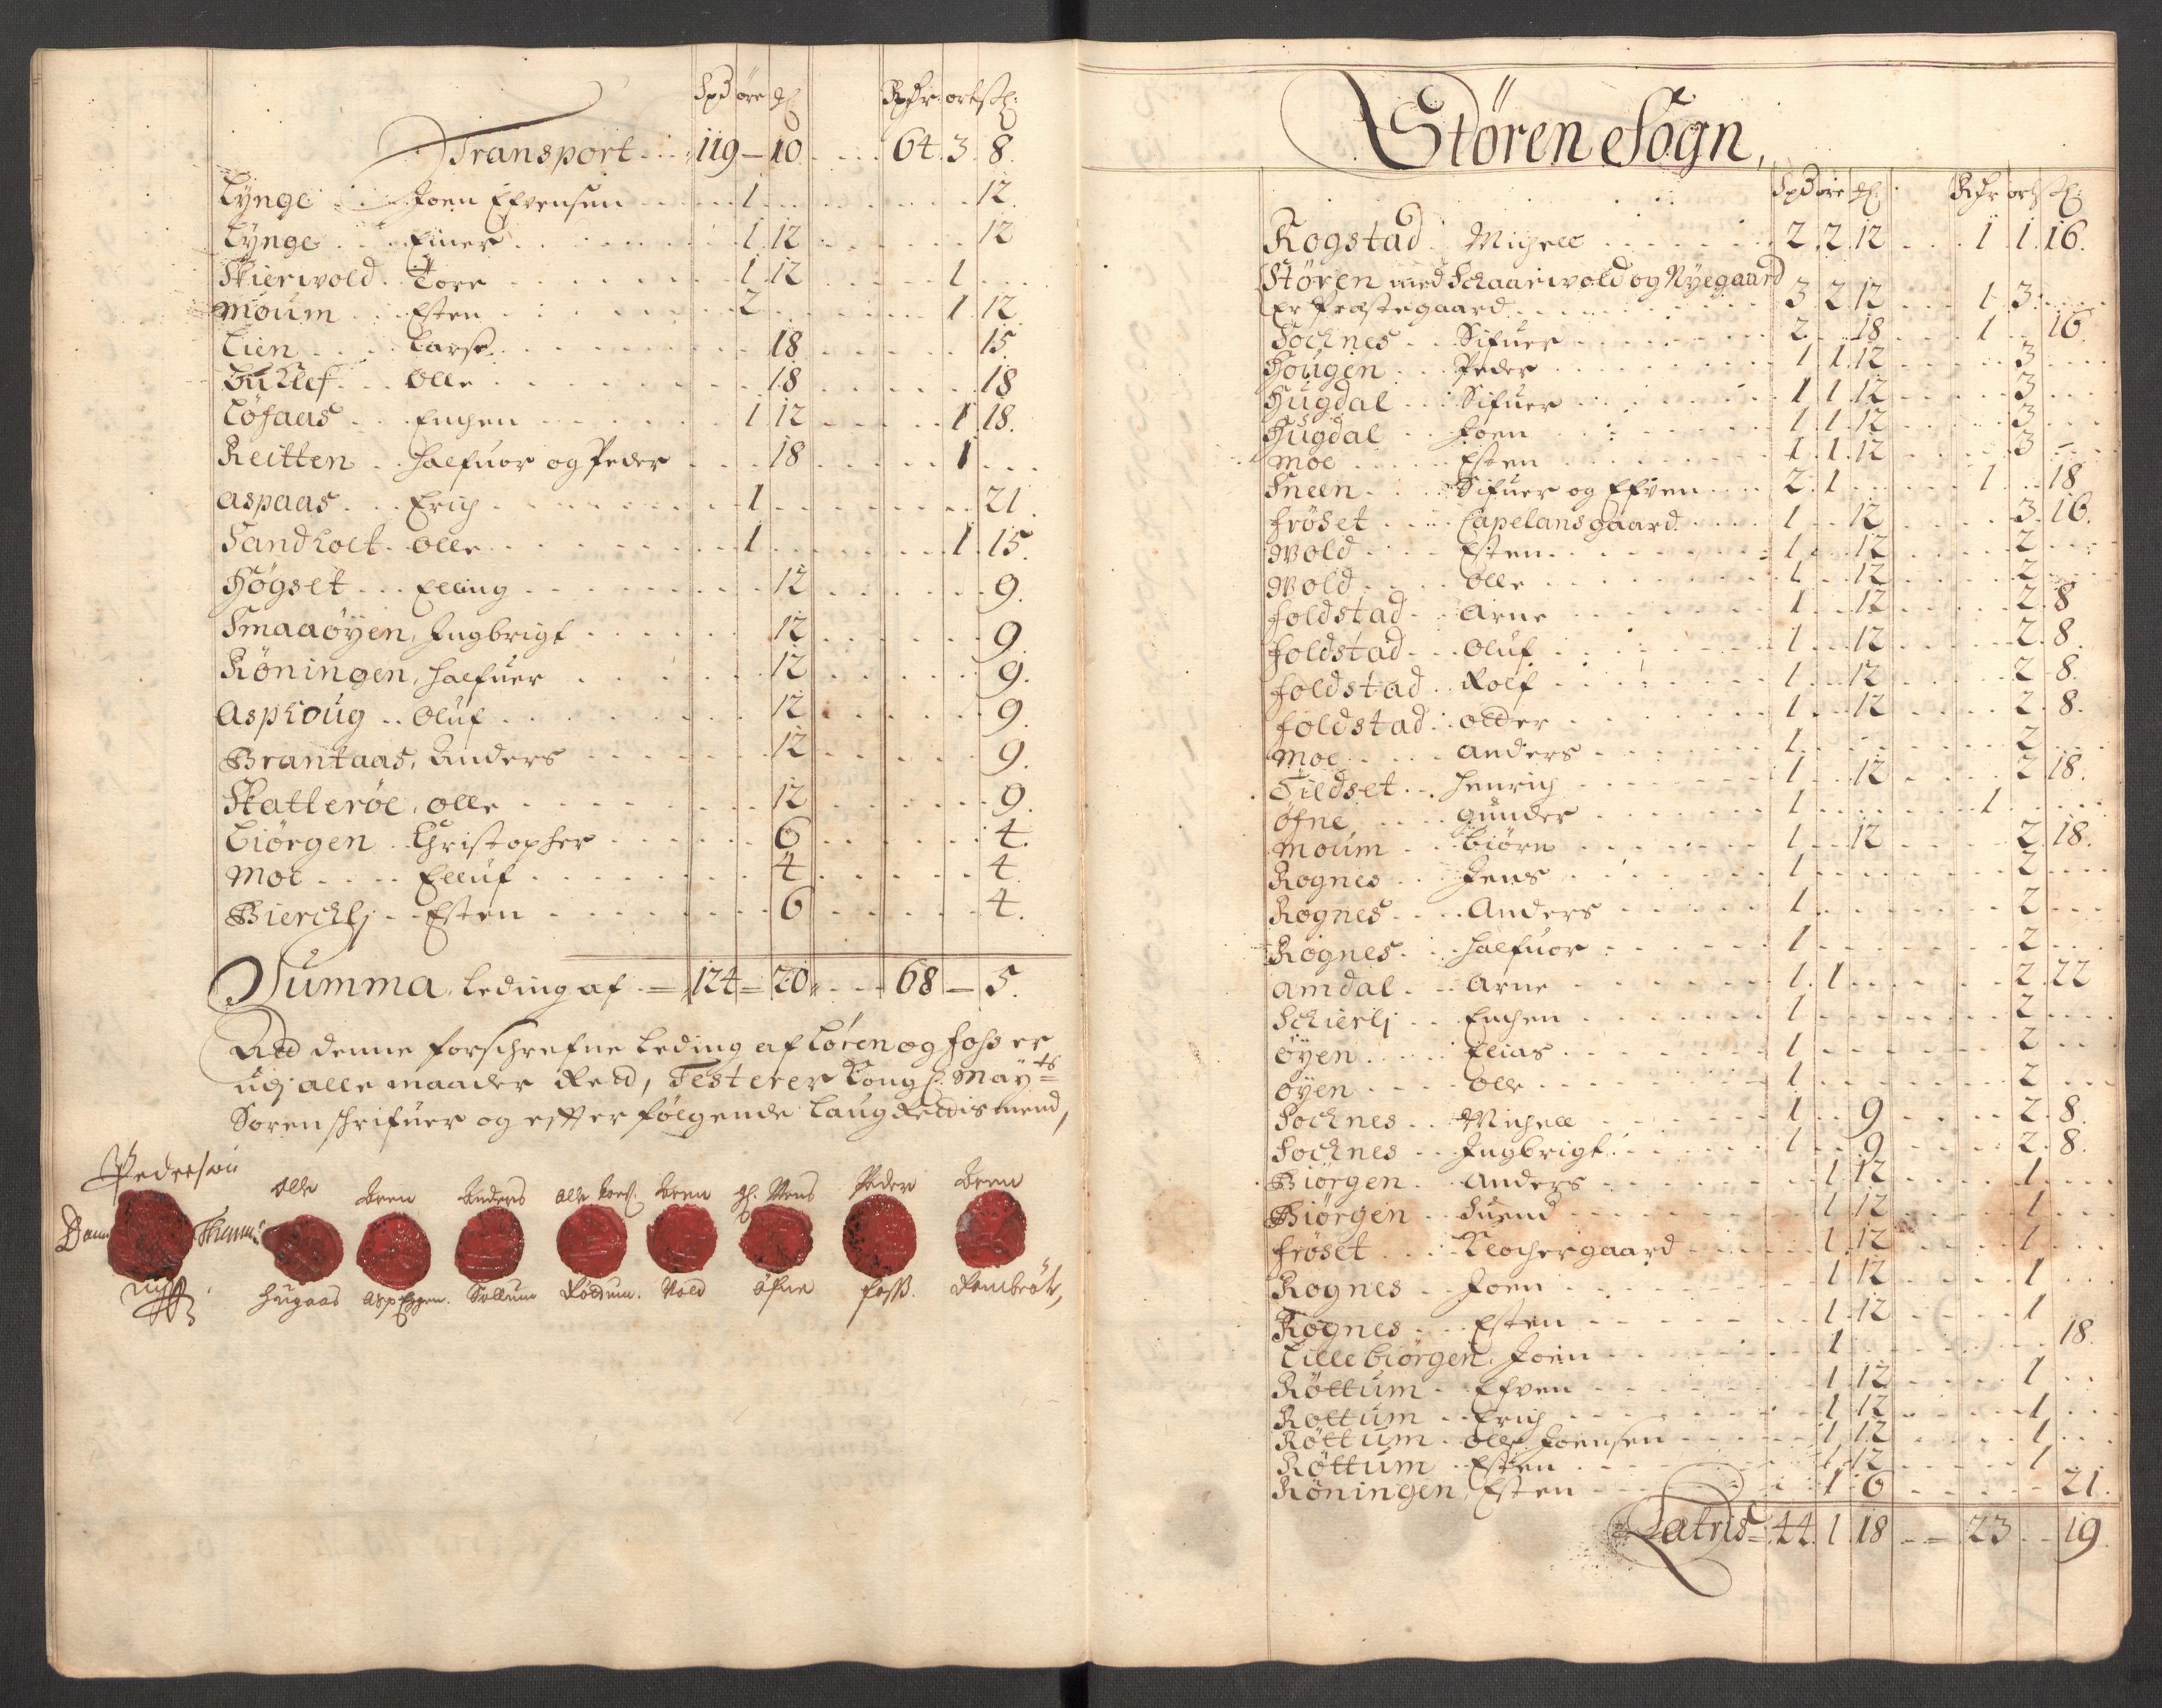 Spd øre
Transport 119 — 10 64 3 8
Lynge Joen Efvensen 1 12
Lynge Einer 1 12 12
Skierwold Tore 1 12 1
Moum Esten 2 1 12
Lien Larse 18 15
Olle 18 18
Løhaas Enchen 1 12 1 18
Reitten Halfuor og Peder 18 1
Aspaas Erich 1 21
Sandholt Olle 1 1 15
Høgset Elling 12 9
Smaaøyen Ingbrigt 12 9
Røningen Halfuer 12 9
Asphoug Oluf 12 9
Brantaas Anders 12 9
Skatterøe Olle 12 9
Biørgen Christopher 6 4
Moe Elluf 4 4
Bierchlj Esten 6 4
Summa Leding af — 124 — 20 68 — 5
Att denne forschrefne Leding af Løren og Foss er
udj alle maader Rett, Testerer Kongl: Mayts
Sorenschrifuer og efterfølgende Laug Rettismend,
Pedersøn
Olle Anders Olle Peder
Hugaas Aspeggen Sollum Røttum Vold Øfne Foss
Støren Sogn,
Spd øre ort
Rogstad Michell 2 2 12 1 1 16
Støren med Schaarwold og Nyegaard
er Præstegaard 3 2 12 1 3
Sochnes Sifuer 2 18 1 16
Hougen Peder 1 1 12 3
Hugdal Sifuer 1 1 12 3
Hugdal Joen 1 1 12 3
Moe Esten 1 1 12 3
Sneen Sifuer og Efven 2 1 1 18
Frøset Capelans gaard 1 12 3 16
Wold Esten 1 12 2
Wold Olle 1 12 2
Foldstad Arne 1 12 2 8
Foldstad Oluf 1 12 2 8
Foldstad Rolf 1 12 2 8
Foldstad Older 1 12 2 8
Moe Anders 1 2
Tildset Henrich 1 12 2 18
Øfne Gunder 1 1
Moum Biørn 1 12 2 18
Rognes Jens 1 2
Rognes Anders 1 2
Rognes Halfuor 1 2
Amdal Arne 1 1 2 22
Schierlj Enchen 1 2
Øyen Elias 1 2
Øyen Olle 1 2
Sochnes Michell 1 9 2 8
Sochnes Ingbrigt 1 9 2 8
Biørgen Anders 1 12 1
Biørgen Suend 1 12 1
Frøset Klochergaard 1 12 1
Rognes Joen 1 12 1
Rognes Esten 1 12 1
Lille Biørgen Joen 1 18
Røttum Efven 1 12 1
Røttum Erich 1 12 1
Røttum Olle Joensen 1 12 1
Røttum Esten 1 12 1
Røningen Esten 1 6 21
Latris 44 1 18 — 23 19